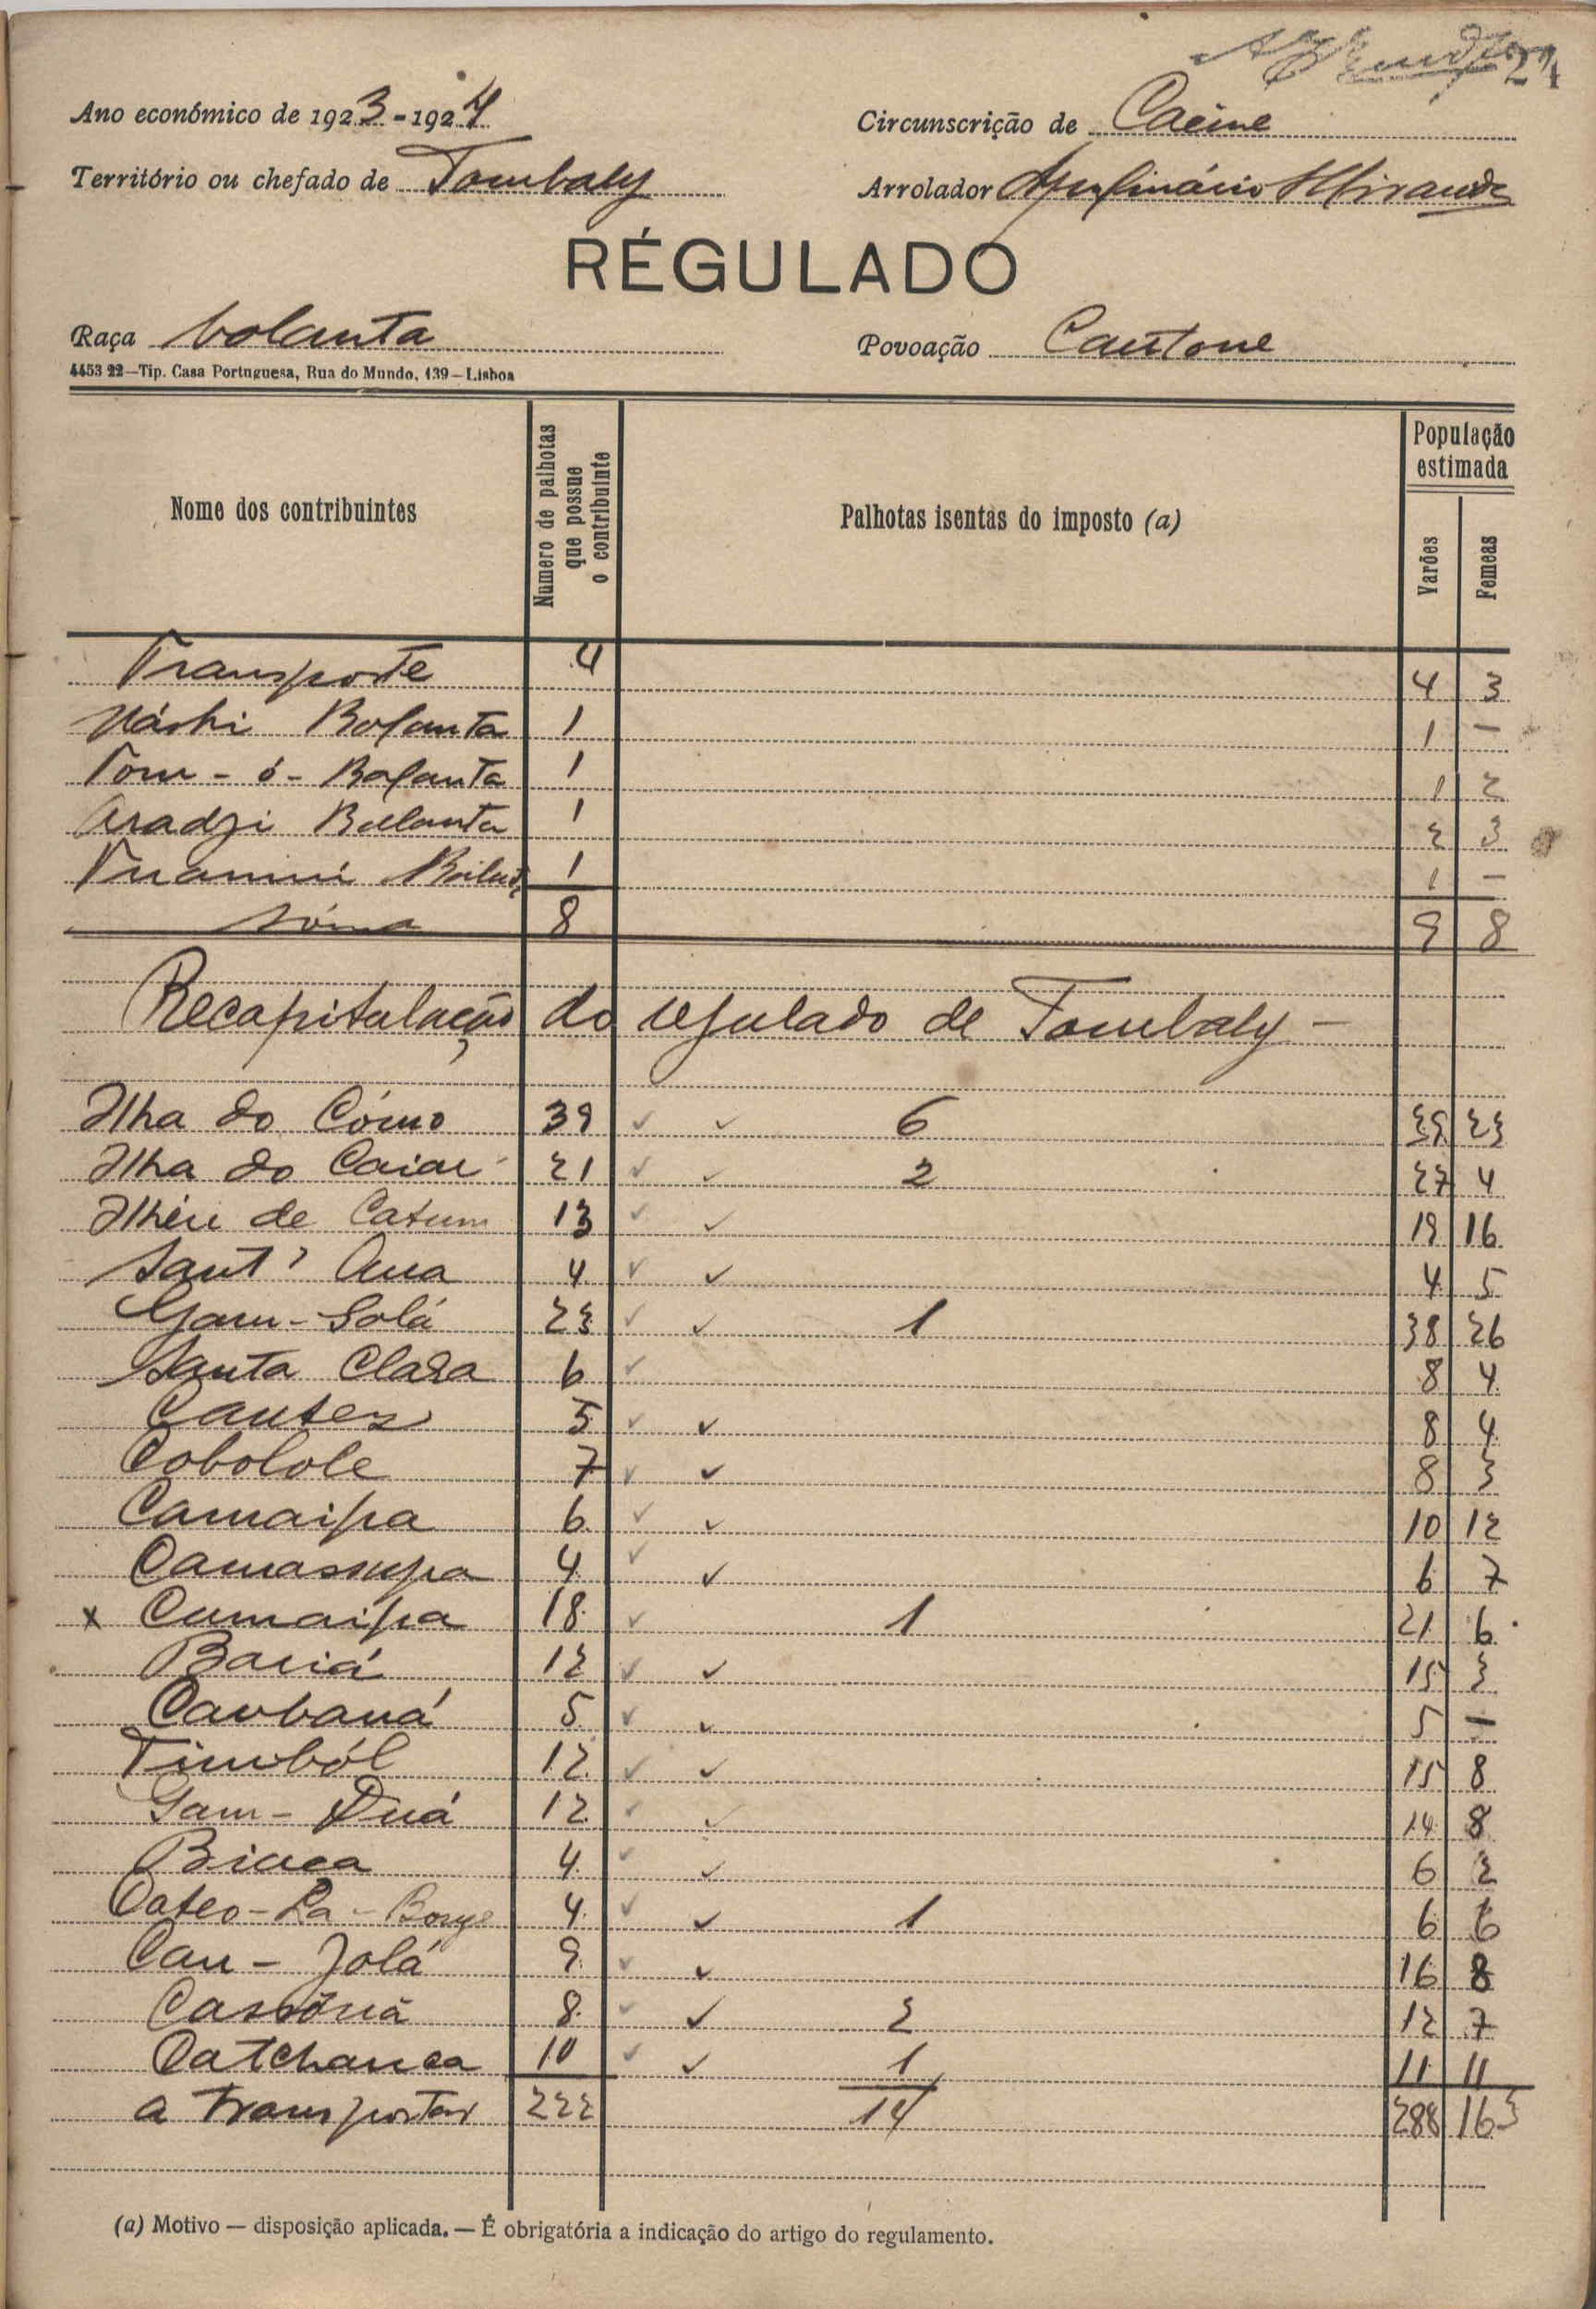 24
Ano económico de 1923-1924 Circunscrição de Cacine
Território ou chefado de Tombaly Arrolador Apolinário Miranda
RÉGULADO
Raça bolanta Povoação Cautone
4453 22—Tip. Casa Portuguesa, Rua do Mundo, 139—Lisboa
Nome dos contribuintes Numero de palhotas que possue o contribuinte Palhotas isentas do imposto (a) População estimada Varões Femeas
Transporte 4 4 3
Balanta 1 1 —
Tom - ó - Balanta 1 1 2
Aradzi Balanta 1 2 3
1 1 —
Sóma 8 9 8
Recapitulação do regulado de Tombaly —
Ilha do Cómo 39 ✓ ✓ 6 39 23
Ilha do Caiar 21 ✓ ✓ 2 27 4
Ilhéu de Catum 13 ✓ ✓ 19 16
Sant' Ana 4 ✓ ✓ 4 5
Gam-Solá 23 ✓ ✓ 1 38 26
Santa Clara 6 ✓ 8 4
Cautes 5 ✓ ✓ 8 4
Cobolole 7 ✓ ✓ 8 3
Camaipa 6 ✓ ✓ 10 12
Camassupa 4 ✓ ✓ 6 7
x Cumaipa 18 ✓ 1 21 6
Bariá 12 ✓ ✓ 15 3
Caubaná 5 ✓ ✓ 5 —
Timból 12 ✓ ✓ 15 8
Gam - Duá 12 ✓ ✓ 14 8
Biuca 4 ✓ ✓ 6 2
Cateo-La-Bonge 4 ✓ ✓ 1 6 6
Cau - Jolá 9 ✓ ✓ 16 8
Cassõnã 8 ✓ ✓ 2 12 7
Catchauca 10 ✓ ✓ 1 11 11
a transportar 222 14 288 163
(a) Motivo — disposição aplicada. — É obrigatória a indicação do artigo do regulamento.